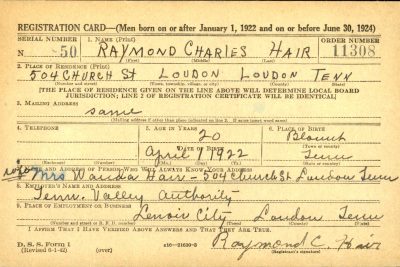 REGISTRATION CARD—(Men born on or after January 1, 1922 and on or before June 30, 1924)
SERIAL NUMBER 1. NAME (Print) ORDER NUMBER
N 50 RAYMOND CHARLES HAIR 11308
(First) (Middle) (Last)
2. PLACE OF RESIDENCE (Print)
504 CHURCH St LOUDON LOUDON TENN
(Number and street) (Town, township, village, or city) (County) (State)
[THE PLACE OF RESIDENCE GIVEN ON THE LINE ABOVE WILL DETERMINE LOCAL BOARD
JURISDICTION; LINE 2 OF REGISTRATION CERTIFICATE WILL BE IDENTICAL]
3. MAILING ADDRESS
same
(Mailing address if other than place indicated on line 2. If same insert word same)
4. TELEPHONE 5. AGE IN YEARS 6. PLACE OF BIRTH
20 Blount
DATE OF BIRTH (Town or county)
April 1922 Tenn
(Mo.) (Day) (Yr.) (State or country)
7. NAME AND ADDRESS OF PERSON WHO WILL ALWAYS KNOW YOUR ADDRESS
Mrs Wanda Hair - 504 Church St Loudon Tenn
8. EMPLOYER'S NAME AND ADDRESS
Tenn. Valley Authority
9. PLACE OF EMPLOYMENT OR BUSINESS
Lenoir City Loudon Tenn
(Number and street or R. F. D. number) (Town) (County) (State)
I AFFIRM THAT I HAVE VERIFIED ABOVE ANSWERS AND THAT THEY ARE TRUE.
D. S. S. Form 1
(Revised 6-1-42) (over) Raymond C. Hair
(Registrant's signature)